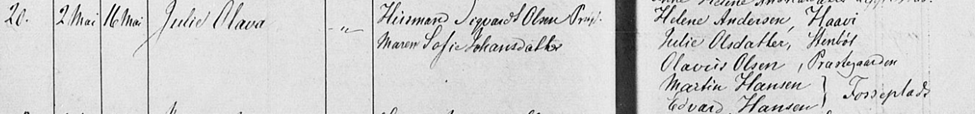 20. 2 Mai 16 Mai Julie Olava – „ – Huusmand Sigvardt Olsen
Maren Sofie Johansdatter
Helene Andersen, Haavi
Julie Olsdatter, Stenbøt
Olavus Olsen, Præstegaarden
Martin Hansen } Fosseplads
Edvard Hansen